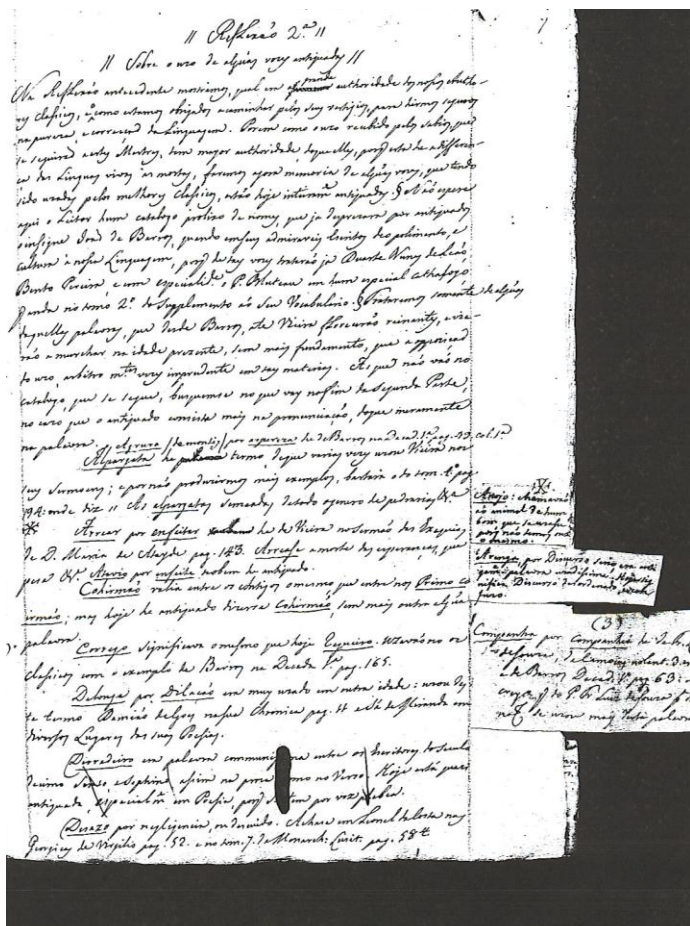 // Reflexão 2.ª //
// Sobre o uso de algũas vozes antiquadas //
Na Reflexão antecedente mostramos, qual era a grande authoridade dos nossos Autho-
res classicos, e como estamos obrigados a caminhar pelos seus vestigios, para hirmos seguros
na pureza, e correcção da Linguagem. Porem como o uso recebido pelos sabios, que
se seguirão a estes Mestres, tem mayor authoridade daquelles, porq̃ esta he a differen-
ça das Linguas vivas as mortas, faremos agora memoria de algũas vozes, que tendo
sido uzadas pelos melhores classicos, estão hoje antiquadas. § Não espere
aqui o Leitor hum catalogo prolixo de nomes, que ja desprezara por antiquados
o insigne João de Barros, quando em seus admiraveis Escritos deo polimento, e
cultura à nossa Linguagem, porq̃ de taes vozes tratarão ja Duarte Nunes de Leão,
Bento Pereira, e com especialid.e o P. Bluteau em hum especial cathalogo
que anda no tomo 2.º do Supplemento ao seu Vocabulario. § Trataremos somente de algũas
daquellas palavras, que desde Barros, ate Vieira florecerão reinantes, e vie-
rão a murchar na idade prezente, sem mais fundamento, que a opposição
do uzo, arbitro m.tas vezes imprudente em taes materias. As que não vão no
catalogo, que se segue, busquemse no que vay no fim da Segunda Parte,
no caso que o antiquado consista mais na pronunciação, do que meramente
na palavra. Agrura (de montes) por aspereza he de Barros na Decad. 1.ª pag. 33. col. 1.ª
Alpargata he termo, de que varias vezes usou Vieira nos
seus Sermoens; e por não produzirmos mais exemplos, bastará o do tom. 4.º pag.
194. onde diz // As alpargatas semeadas de todo o genero de pedrarias &.ª
Arrear por enfeitar he de Vieira no Sermão das Exequias
de D. Maria de Atayde pag. 143. Arrease a morte das esperanças, que
&.ª Atavio por enfeite tambem he antiquado.
Cohirmão valia entre os Antigos o mesmo que entre nos Primo co
irmão; mas hoje he antiquado dizerse Cohirmão, sem mais outra algũa
palavra.
Corrego significava o mesmo que hoje Regueiro. Uzavão no os
classicos com o exemplo de Barros na Decada 1.ª pag. 165.
Delonga por Dilação era muy uzado em outra idade: usou des-
te termo Damião de Goes na sua Chronica pag. 44 e Sá de Miranda em
diversos Lugares das suas Poesias.
Derradeiro era palavra commumissima entre os Escritores do Seculo
decimo Sexto, e Septimo assim na prosa como no Verso. Hoje está quasi
antiquada, especialm.te em Poesia, porq̃ só tem por voz plebea.
Desazo por negligencia, ou descuido. Achase em Leonel da Costa nas
Georgicas de Virgilio pag. 52. e no tom. 7. da Monarch. Lusit. pag. 584
Anejo: chamavão
ao animal de hum
anno
porq̃ não temos outro
o mesmo.
Arenga por Discurso
palavra
Discurso desordenado, e
(3)
Companha por Companhia he de
e de Barros Decad. 1.ª pag 63:
do P. Fr. Luis de Sousa
se usou mais desta palavra